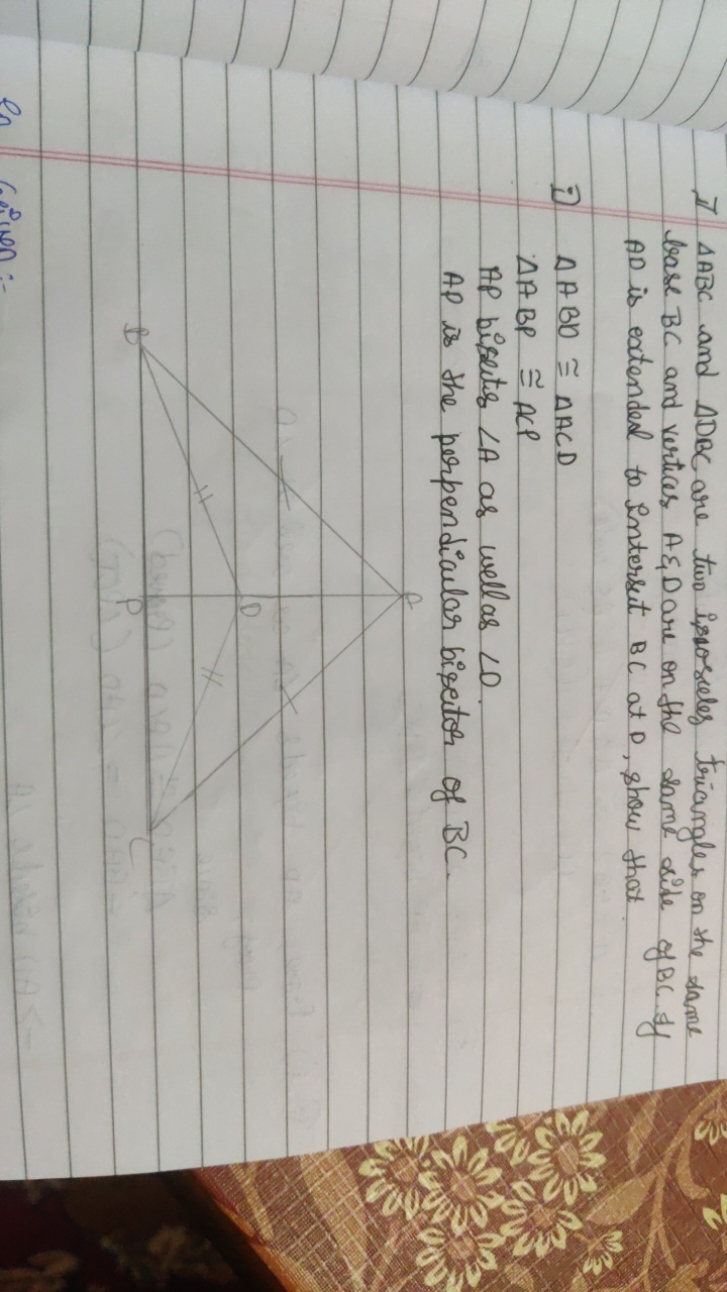 1) ΔABC and ΔDBC are two isosceles triangles on the same
base BC and vertices A & D are on the same side of BC. If
AD is extended to intersect BC at P, show that
i) ΔABD ≅ ΔACD
ΔABP ≅ ACP
AP bisects ∠A as well as ∠D.
AP is the perpendicular bisector of BC.
A
D
B
P
C
Given :-